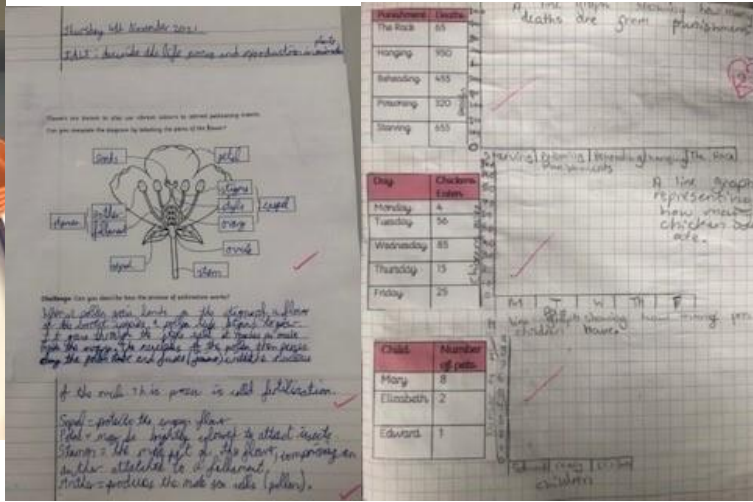 Thursday 4th November 2021
IALT: describe the life process and reproduction in
plants
Flowers are known to often use vibrant colours to attract pollinating insects.
Can you complete the diagram by labelling the parts of the flower?
petal
stigma
style
carpel
ovary
ovule
stem
sepal
stamen
anther
filament
Challenge: Can you describe how the process of fertilisation works?
When a pollen grain lands on the stigma of a flower
of the correct species a pollen tube begins to grow.
It grows through the style until it reaches an ovule
inside the ovary. The nucleus of the pollen then passes
along the pollen tube and fuses (joins) with the nucleus
of the ovule. This process is called fertilisation.
Sepal = protects the unopen flower
Petal = may be brightly coloured to attract insects
Stamen = the male part of the flower, comprising an
anther attatched to a filament.
Anther = produces the male sex cells (pollen).
Punishment Deaths
The Rack 65
Hanging 950
Beheading 455
Poisoning 320
Starving 655
A line graph showing how many
deaths are from punishments
Starving Poisoning Beheading Hanging The Rack
Punishments
Day Chickens Eaten
Monday 4
Tuesday 56
Wednesday 85
Thursday 15
Friday 25
A line graph
representing
how many
chicken
ate.
M T W TH F
line graph showing how many
children have.
Child Number of pets
Mary 8
Elizabeth 2
Edward 1
children